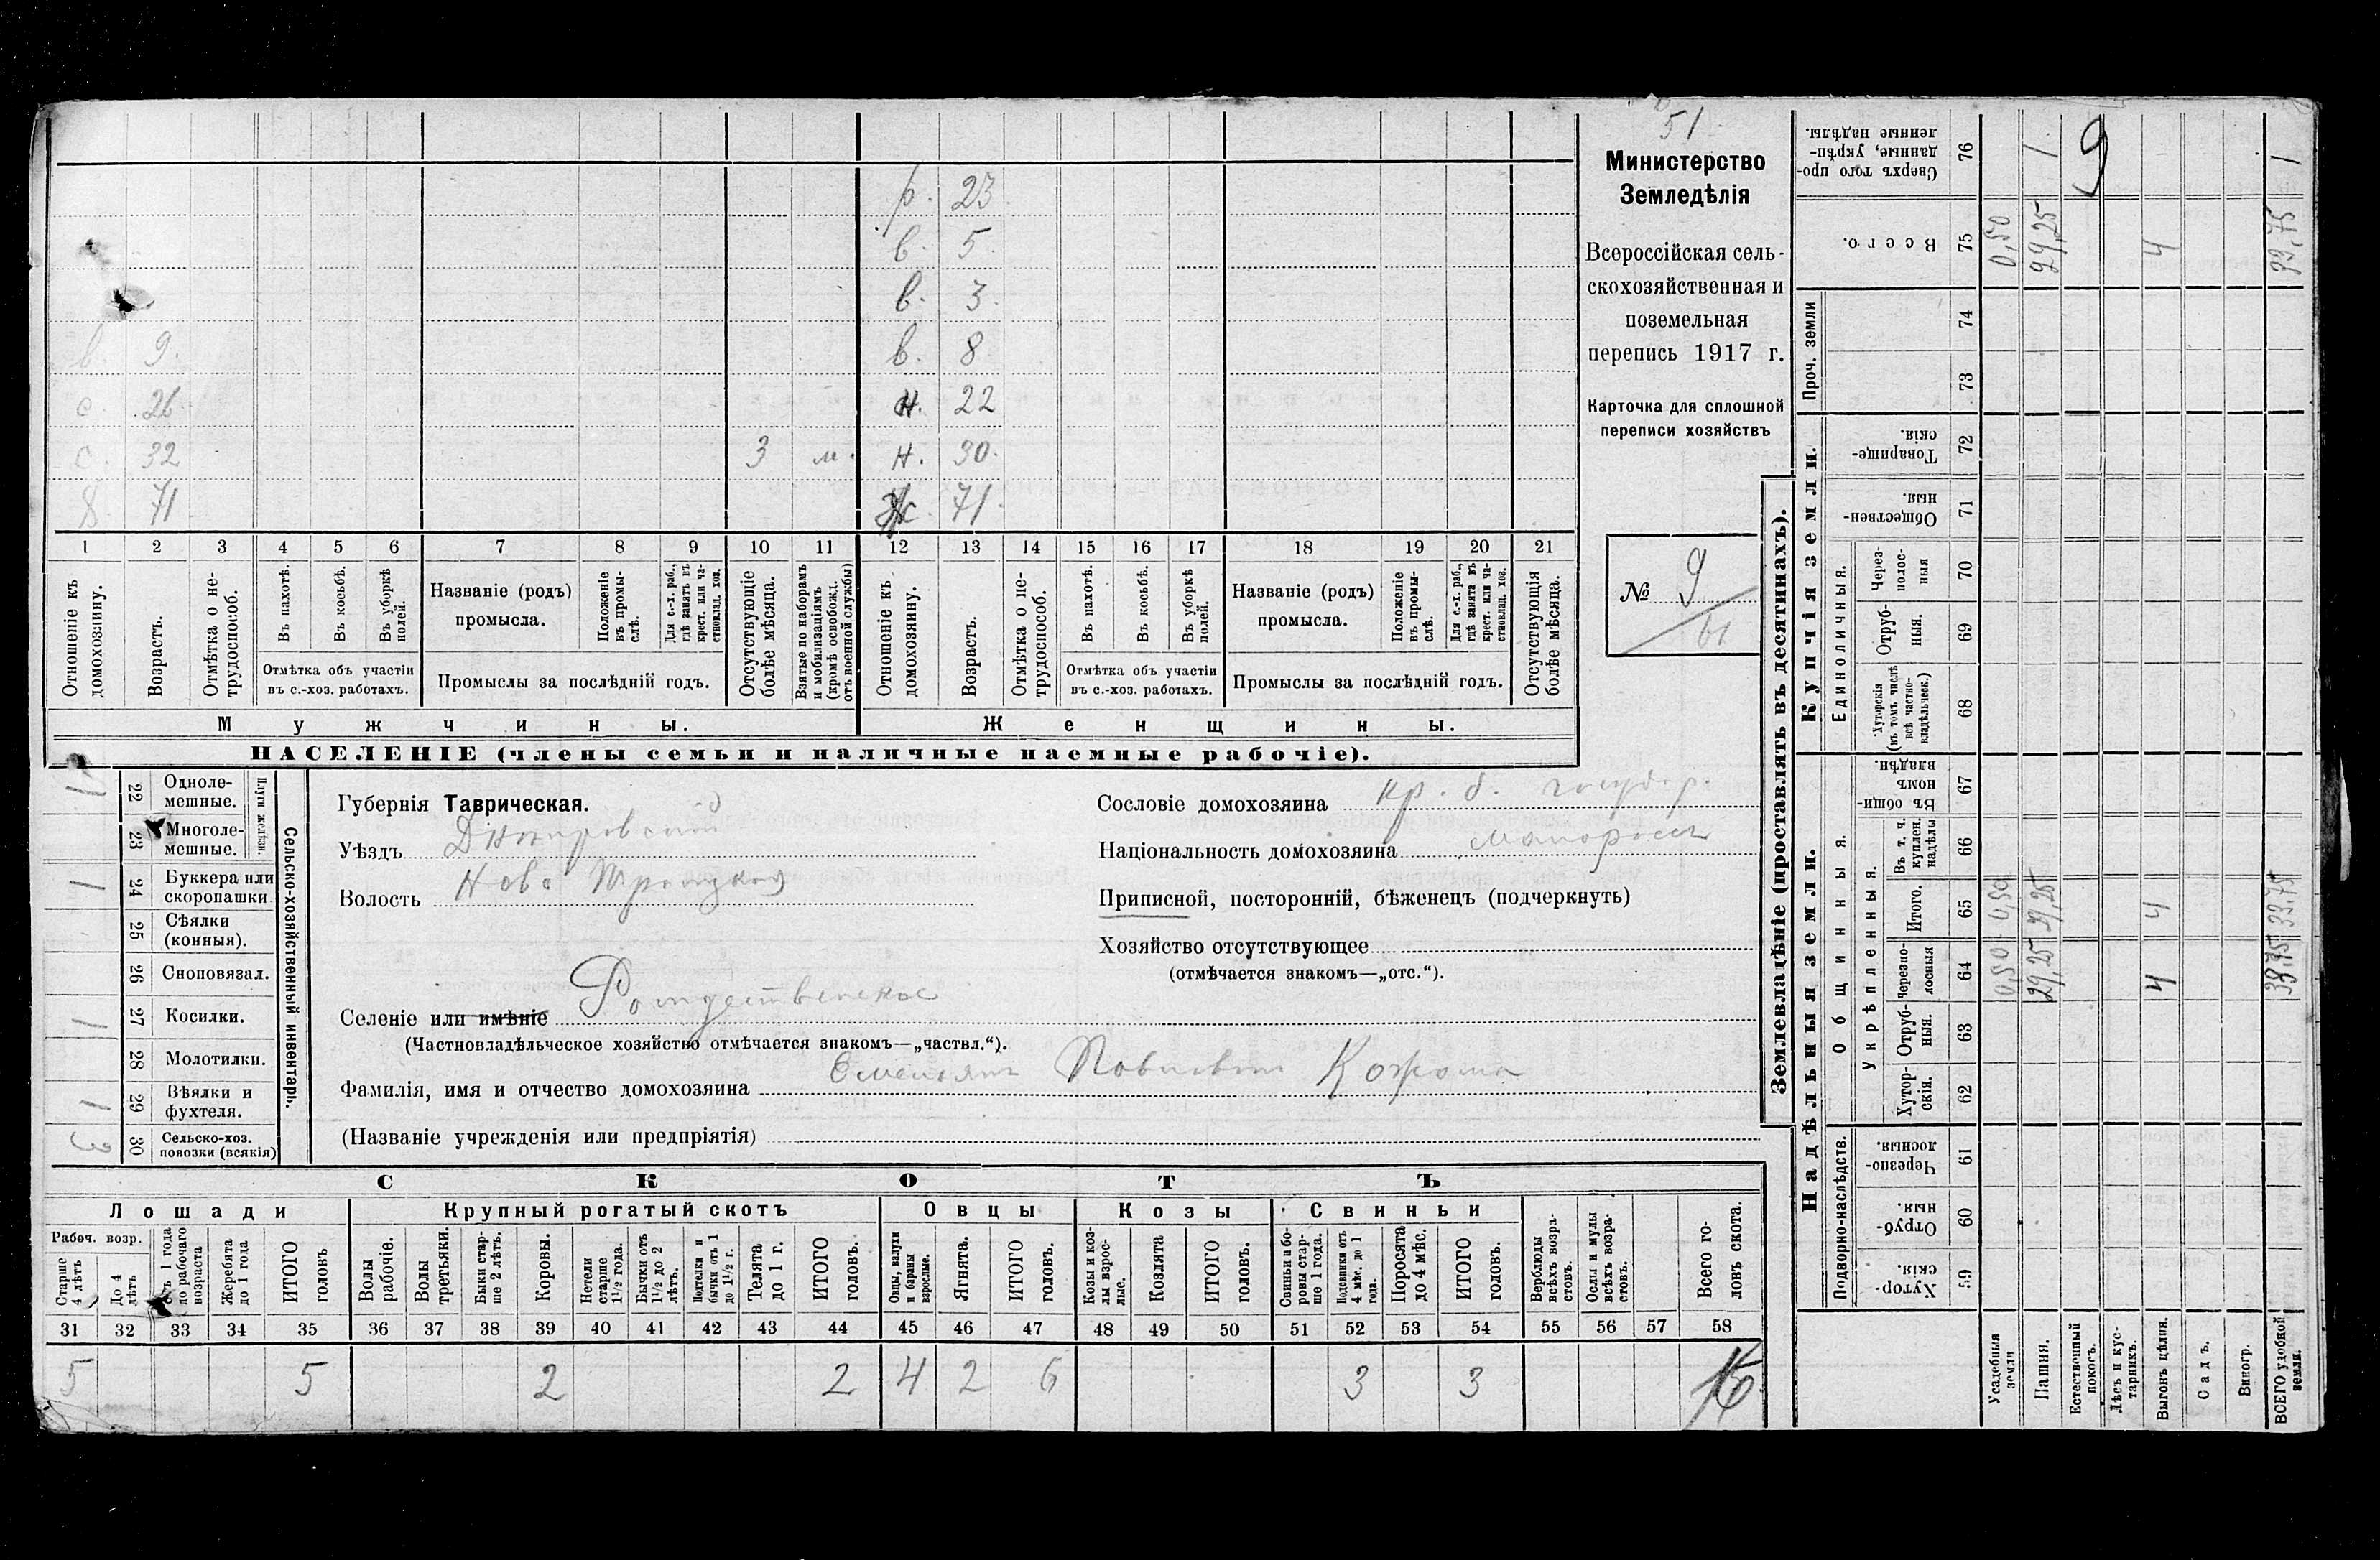 51
Министерство
Земледѣлія
Всероссійская сель-
скохозяйственная и
поземельная
перепись 1917 г.
Карточка для сплошной
переписи хозяйствъ
№ 9
61
р. 23
в. 5.
в. 3.
в. 9. в. 8
с. 26. н. 22
с. 32 3 м. н. 30.
71 ж. 71.
1 2 3 4 5 6 7 8 9 10 11 12 13 14 15 16 17 18 19 20 21
Отношеніе къ домохозяину.
Возрастъ.
Отмѣтка о не-трудоспособ.
Въ пахотѣ.
Въ косьбѣ.
Въ уборкѣ полей.
Отмѣтка объ участіи
въ с.-хоз. работахъ.
Названіе (родъ)
промысла.
Положеніе въ промы-слѣ.
Для с.-х. раб., гдѣ занятъ въ крест. или ча-стновлад. хоз.
Промыслы за послѣдній годъ.
Отсутствующіе болѣе мѣсяца.
Взятые по наборамъ и мобилизаціямъ (кромѣ освобожд. отъ военной службы)
Отношеніе къ домохозяину.
Возрастъ.
Отмѣтка о не-трудоспособ.
Въ пахотѣ.
Въ косьбѣ.
Въ уборкѣ полей.
Отмѣтка объ участіи
въ с.-хоз. работахъ.
Названіе (родъ)
промысла.
Положеніе въ промы-слѣ.
Для с.-х. раб., гдѣ занята въ крест. или ча-стновлад. хоз.
Промыслы за послѣдній годъ.
Отсутствующія болѣе мѣсяца.
Мужчины. Женщины.
НАСЕЛЕНІЕ (члены семьи и наличные наемные рабочіе).
Сельско-хозяйственный инвентарь.
Плуги желѣзн.
1 22 Одноле-мешные.
23 Многоле-мешные.
1 24 Буккера или скоропашки
25 Сѣялки (конныя).
26 Сноповязал.
1 27 Косилки.
28 Молотилки.
1 29 Вѣялки и фухтеля.
3 30 Сельско-хоз. повозки (всякія)
Губернія Таврическая.
Уѣздъ Днѣпровскій
Волость Ново Троицкая
Селеніе или имѣніе Рождественское
(Частновладѣльческое хозяйство отмѣчается знакомъ—„частвл.“).
Фамилія, имя и отчество домохозяина Емельянъ Павловичъ Кожома
(Названіе учрежденія или предпріятія)
Сословіе домохозяина кр. б. государ.
Національность домохозяина малороссъ
Приписной, посторонній, бѣженецъ (подчеркнуть)
Хозяйство отсутствующее
(отмѣчается знакомъ—„отс.“).
СКОТЪ
Лошади Крупный рогатый скотъ Овцы Козы Свиньи
Рабоч. возр.
Старше 4 лѣтъ
До 4 лѣтъ
Отъ 1 года до рабочаго возраста
Жеребята до 1 года
ИТОГО головъ
Волы рабочіе.
Волы третьяки.
Быки стар-ше 2 лѣтъ.
Коровы.
Нетели старше 1½ года.
Бычки отъ 1½ до 2 лѣтъ.
Подтелки и бычки отъ 1 до 1½ г.
Телята до 1 г.
ИТОГО головъ.
Овцы, валухи и бараны взрослые.
Ягнята.
ИТОГО головъ.
Козы и коз-лы взрос-лые.
Козлята
ИТОГО головъ.
Свиньи и бо-ровы стар-ше 1 года.
Подсвинки отъ 4 мѣс. до 1 года.
Поросята до 4 мѣс.
ИТОГО головъ.
Верблюды всѣхъ возра-стовъ.
Ослы и мулы всѣхъ возра-стовъ.
Всего го-ловъ скота.
31 32 33 34 35 36 37 38 39 40 41 42 43 44 45 46 47 48 49 50 51 52 53 54 55 56 57 58
5 5 2 2 4 2 6 3 3 16
Землевладѣніе (проставлять въ десятинахъ).
Надѣльныя земли. Купчія земли. Проч. земли
Подворно-наслѣдств.
Общинныя.
Укрѣпленныя.
Единоличныя.
Хутор-скія. 59
Отруб-ныя. 60
Черезпо-лосныя 61
Хутор-скія. 62
Отруб-ныя. 63
Черезпо-лосныя 64
Итого. 65
Въ т. ч. куплен. надѣлы 66
Въ общи-номъ владѣн. 67
Хуторскія (въ томъ числѣ всѣ частно-владѣльческ.) 68
Отруб-ныя. 69
Через-полос-ныя 70
Обществен-ныя. 71
Товарище-скія. 72
73
74
Всего. 75
Сверхъ того про-данные, укрѣп-ленные надѣлы. 76
Усадебныя земли 0,50 0,50 0,50
Пашня. 29,25 29,25 29,25 1
Естественный покосъ. 9
Лѣсъ и кус-тарникъ.
Выгонъ цѣлин. 4 4 4
Садъ.
Виногр.
ВСЕГО удобной земли. 33,75 33,75 33,75 1